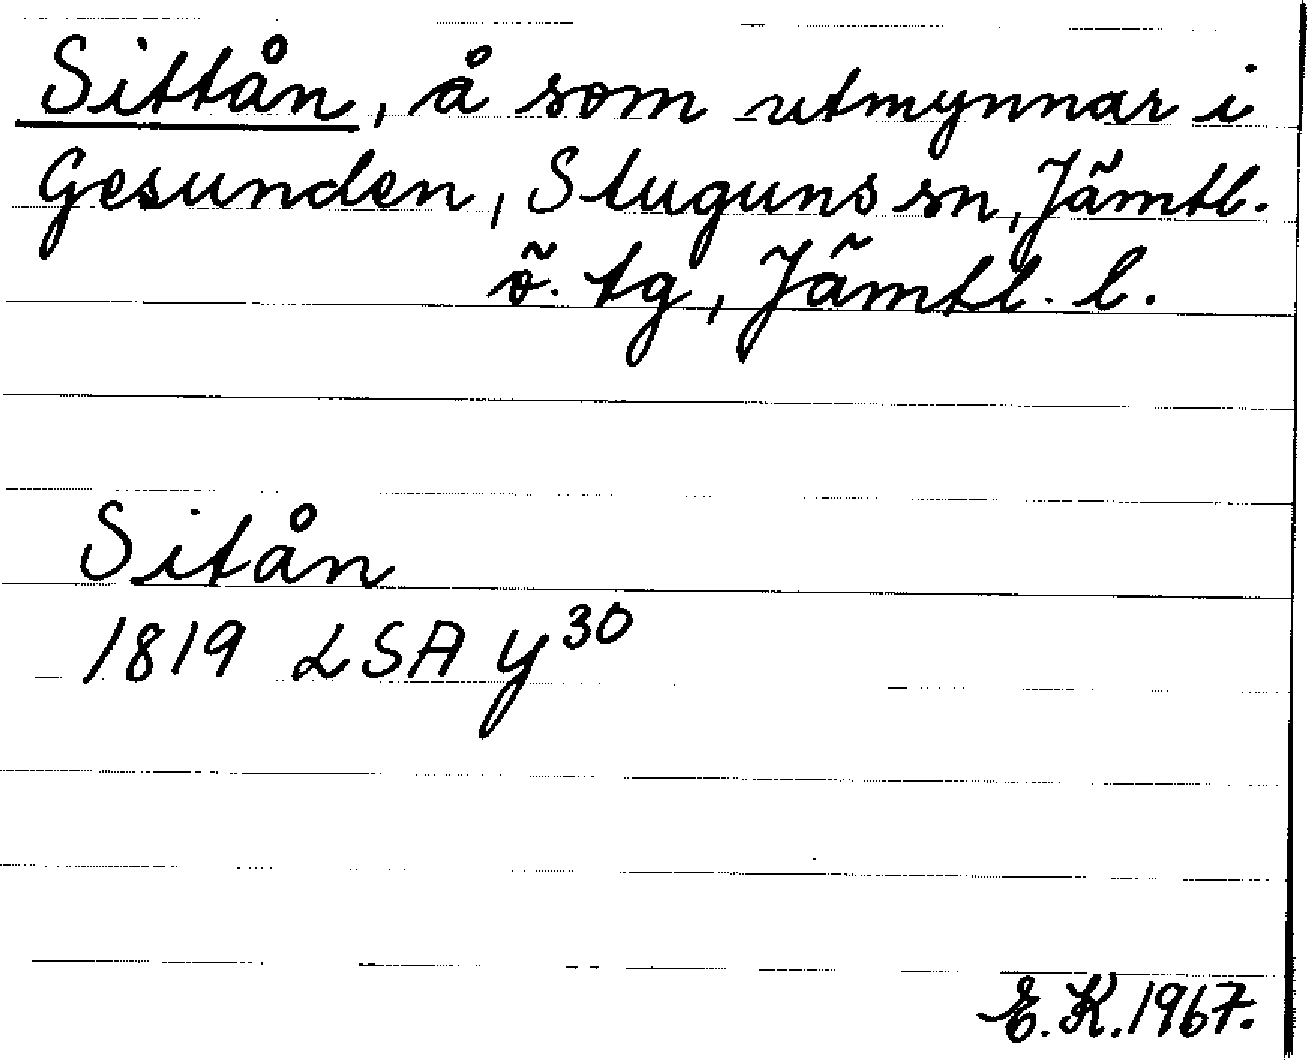 Sittån, å som utmynnar i
Gesunden, Stuguns sn, Jämtl.
ö. tg, Jämtl. l.
Sitån
1819 LSA y³⁰
E.K. 1967.